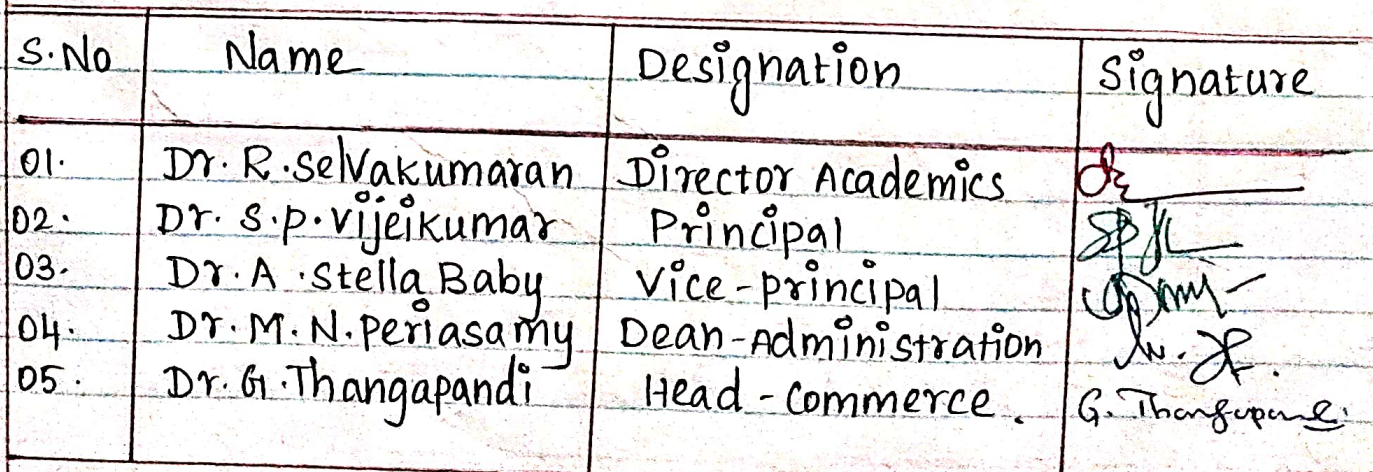 S.No Name Designation Signature
01. Dr. R. Selvakumaran Director Academics
02. Dr. S.P. Vijeikumar Principal
03. Dr. A. Stella Baby Vice-Principal
04. Dr. M.N. Periasamy Dean-Administration
05. Dr. G. Thangapandi Head-Commerce. G. Thangapandi